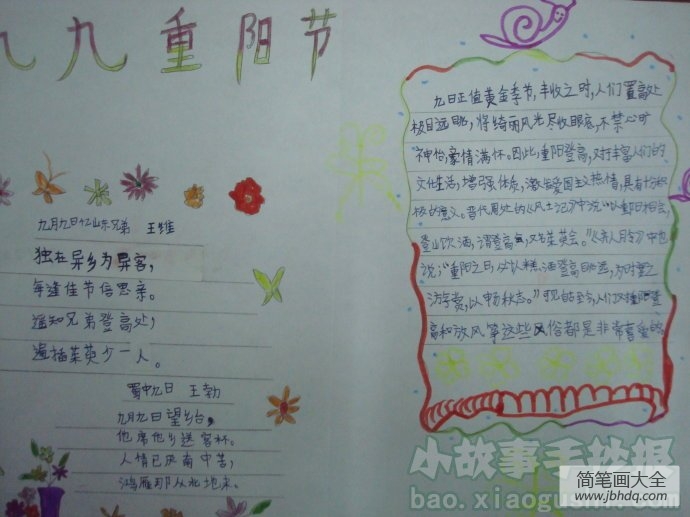 九九重阳节
九月九日忆山东兄弟 王维
独在异乡为异客，
每逢佳节倍思亲。
遥知兄弟登高处，
遍插茱萸少一人。
蜀中九日 王勃
九月九日望乡台，
他席他乡送客杯。
人情已厌南中苦，
鸿雁那从北地来。
九日正值黄金季节，丰收之时，人们置高处
极目远眺，将绮丽风光尽收眼底，不禁心旷
神怡，豪情满怀。因此，重阳登高，对丰富人们的
文化生活，增强体质，激发爱国主义热情，具有十分积
极的意义。晋代周处的《风土记》中说"以重阳相会，
登山饮酒，谓登高会，又名茱萸会。"中也
说："重阳之日，必以糕、酒登高眺远，为时宴之
游赏，以畅秋志。"可见古至今，人们对重阳登
高和放风筝这些风俗都是非常喜爱的。
小故事手抄报
bao.xiaogushi.com
简笔画大全
www.jbhdq.com